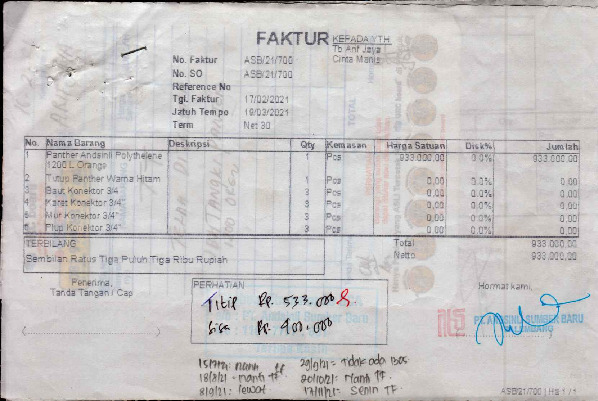 FAKTUR
KEPADA YTH
Tb Arif Jaya
Cinta Manis
No. Faktur ASB/21/700
No. SO ASB/21/700
Reference No
Tgl. Faktur 17/02/2021
Jatuh Tempo 19/03/2021
Term Net 30
No. Nama Barang Deskripsi Qty Kemasan Harga Satuan Disk% Jumlah
1 Panther Andsinli Polythelene 1 Pcs 933.000,00 0.0% 933.000,00
1200 L Orange
2 Tutup Panther Warna Hitam 1 Pcs 0,00 0.0% 0,00
3 Baut Konektor 3/4" 3 Pcs 0,00 0.0% 0,00
4 Karet Konektor 3/4" 3 Pcs 0,00 0.0% 0,00
5 Mur Konektor 3/4" 3 Pcs 0,00 0.0% 0,00
6 Plup Konektor 3/4" 3 Pcs 0,00 0.0% 0,00
TERBILANG Total 933.000,00
Sembilan Ratus Tiga Puluh Tiga Ribu Rupiah Netto 933.000,00
Penerima,
Tanda Tangan / Cap
PERHATIAN
Titip Rp. 533.000
Sisa Rp. 400.000
Hormat kami,
PT. ANDSINLI SUMBER BARU
PALEMBANG
nanti TF 29/9/21 = Tidak ada Bos
18/8/21 - nanti TF 20/10/21 = nanti TF
8/9/21 = lewat 17/11/21 = Senin TF
ASB/21/700 | Hal 1 / 1